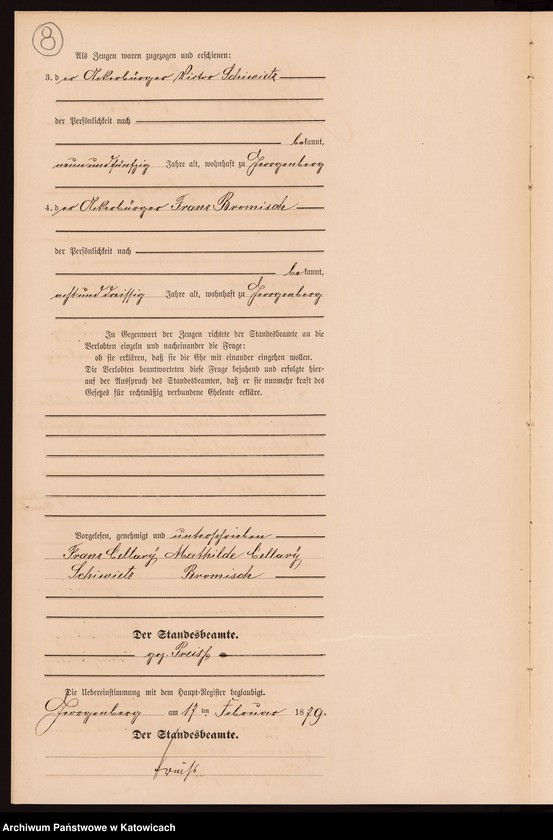 8
Als Zeugen waren zugezogen und erschienen:
3. der Ackerbürger Victor Schiwietz
der Persönlichkeit nach
bekannt,
neunundfünfzig Jahre alt, wohnhaft zu Georgenberg
4. der Ackerbürger Franz Bromisch
der Persönlichkeit nach
bekannt,
achtunddreissig Jahre alt, wohnhaft zu Georgenberg
In Gegenwart der Zeugen richtete der Standesbeamte an die
Verlobten einzeln und nacheinander die Frage:
ob sie erklären, daß sie die Ehe mit einander eingehen wollen.
Die Verlobten beantworteten diese Frage bejahend und erfolgte hier-
auf der Ausspruch des Standesbeamten, daß er sie nunmehr kraft des
Gesetzes für rechtmäßig verbundene Eheleute erkläre.
Vorgelesen, genehmigt und unterschrieben
Franz Cellary Mathilde Cellary
Schiwietz Bromisch
Der Standesbeamte.
gez. Preiß
Die Uebereinstimmung mit dem Haupt-Register beglaubigt.
Georgenberg am 17 ten Februar 1879.
Der Standesbeamte.
Preiß
Archiwum Państwowe w Katowicach